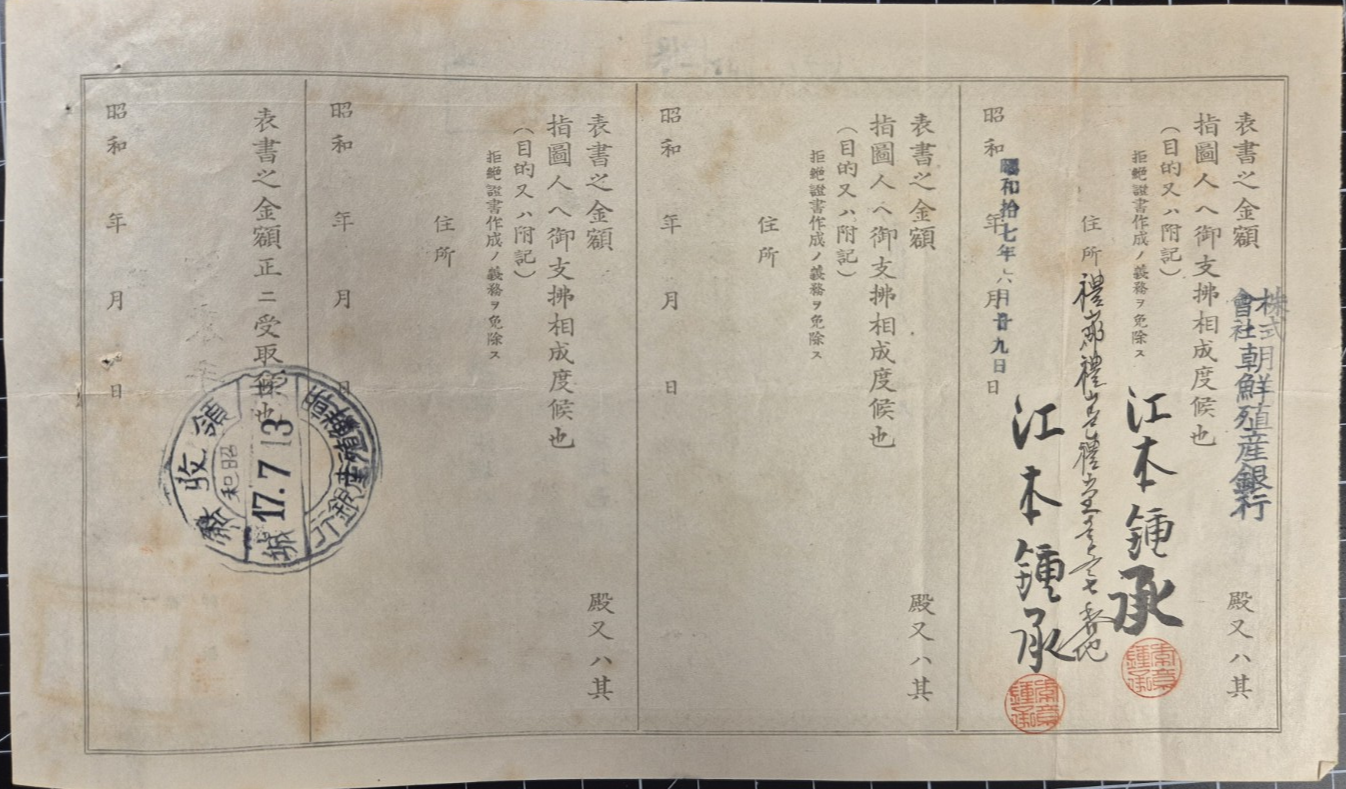 表書之金額
株式會社朝鮮殖産銀行
殿又ハ其
指圖人ヘ御支拂相成度候也
(目的又ハ附記)
拒絶證書作成ノ義務ヲ免除ス
江本鍾承
住所
昭和 年 月 日
昭和拾七年六月廿九日
江本鍾承
表書之金額
殿又ハ其
指圖人ヘ御支拂相成度候也
(目的又ハ附記)
拒絶證書作成ノ義務ヲ免除ス
住所
昭和 年 月 日
表書之金額
殿又ハ其
指圖人ヘ御支拂相成度候也
(目的又ハ附記)
拒絶證書作成ノ義務ヲ免除ス
住所
昭和 年 月 日
表書之金額正ニ受取候也
昭和 年 月 日
領收
昭和
17.7 13
朝鮮殖産銀行